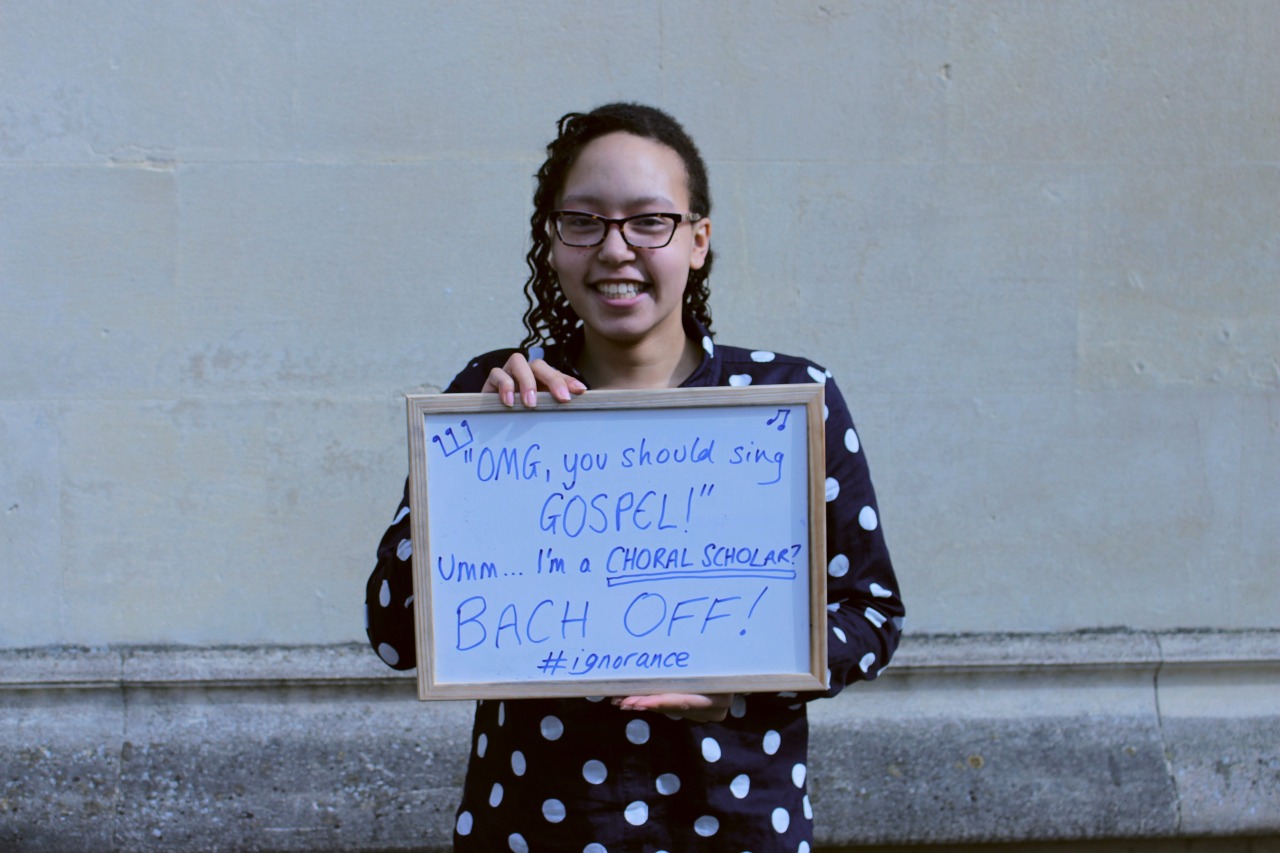 "OMG, you should sing
GOSPEL!"
Umm... I'm a CHORAL SCHOLAR?
BACH OFF!
#ignorance